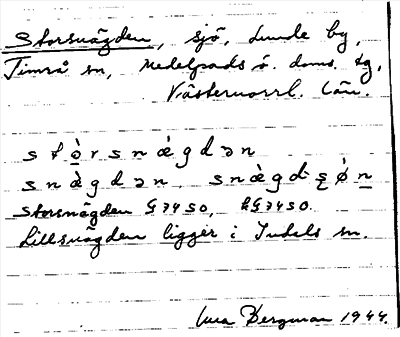 Storsnägden, sjö, Lunde by,
Timrå sn, Medelpads ö. doms. tg,
Västernorrl. län.
stòrsnægdən
snæ̀gdən, snæ̀gd-
Storsnägden G 7450, LG 7450.
Lillsnägden ligger i Indals sn.
Bergman 1944.